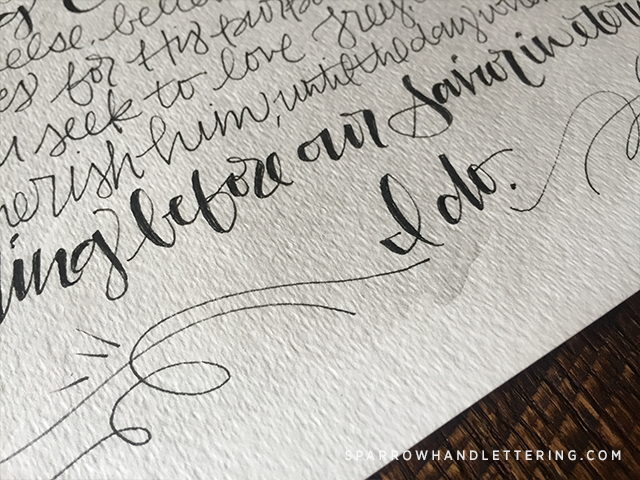 else. believe
es for His purpose
u seek to love
cherish him, until the day when
before our Savior in etern
I do.
SPARROWHANDLETTERING.COM